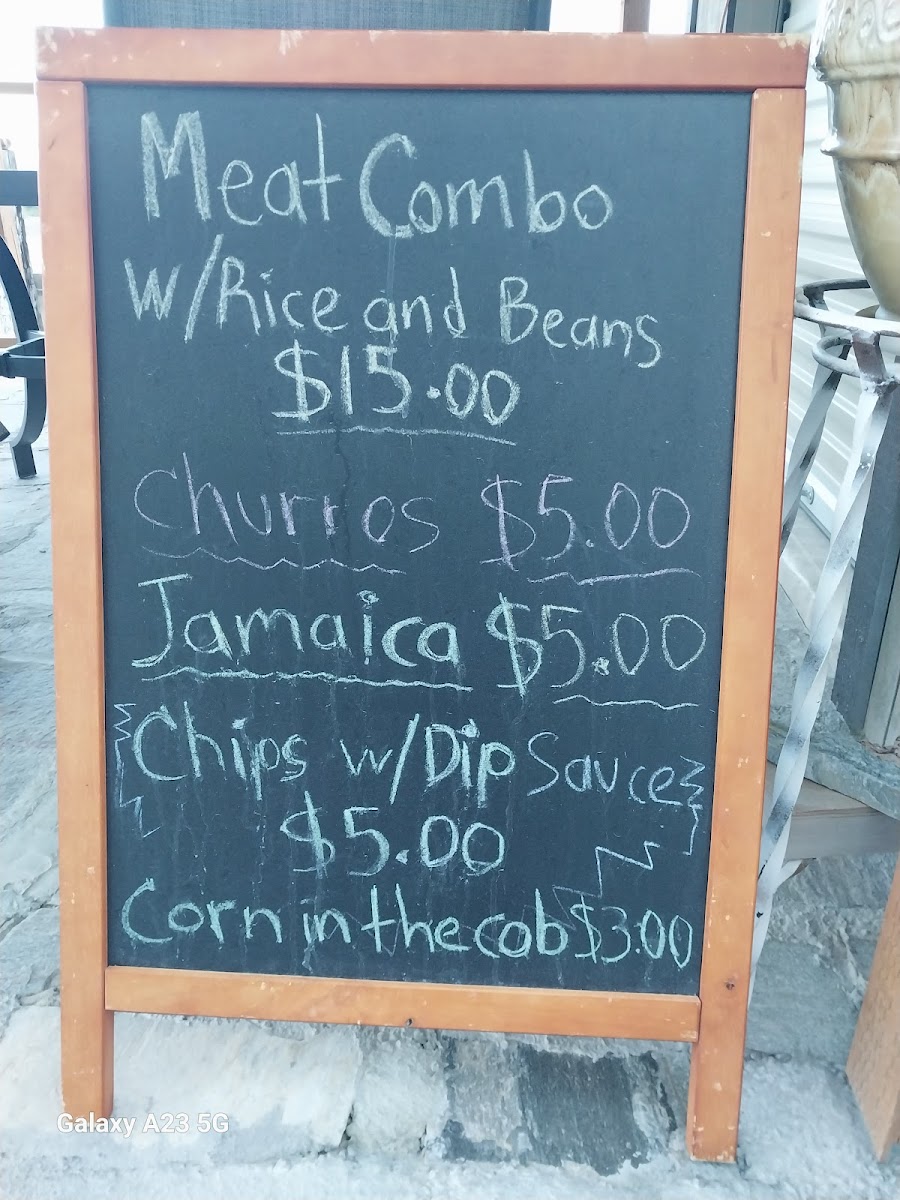 Meat Combo
W/Rice and Beans
$15.00
Churros $5.00
Jamaica $5.00
Chips w/Dip Sauce
$5.00
Corn in the cob $3.00
Galaxy A23 5G